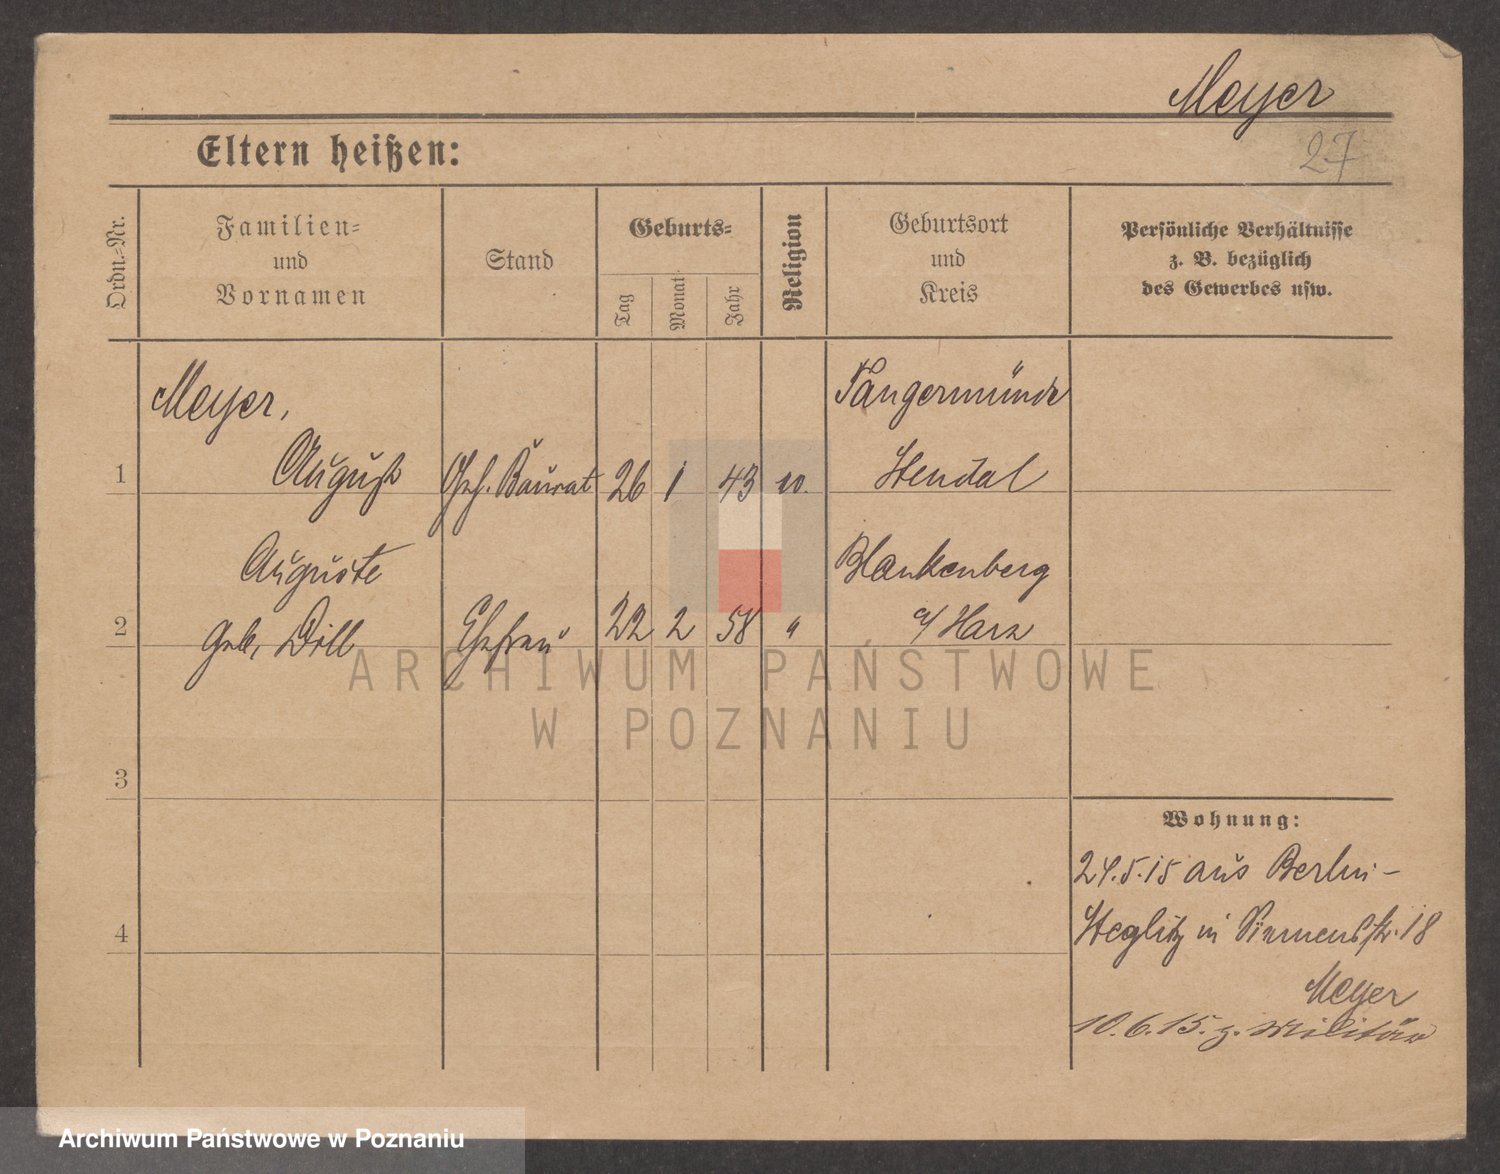 Meyer
27
Eltern heißen:
Ordn.=Nr.
Familien=
und
Vornamen
Stand
Geburts=
Tag
Monat
Jahr
Religion
Geburtsort
und
Kreis
Persönliche Verhältnisse
z. B. bezüglich
des Gewerbes usw.
Meyer,
Tangermünde
1 August Geh. Baurat 26 1 43 Stendal
Auguste Blankenberg
2 geb. Dill Ehefrau 22 2 58 " a/ Harz
ARCHIWUM PAŃSTWOWE
W POZNANIU
3
Wohnung:
24.5.15 aus Berlin-
4
Steglitz in Siemensstr. 18
Meyer
10.6.15. z. Militär
Archiwum Państwowe w Poznaniu